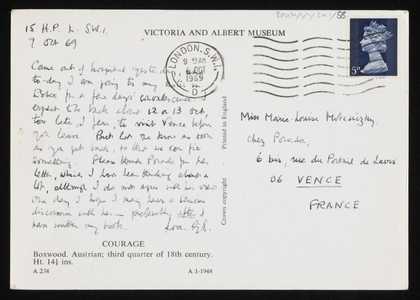 VICTORIA AND ALBERT MUSEUM
15 H.P. L. S.W.1.
9 Oct 69
Came out of hospital yesterday
to-day I am going to my
for a few days' convalescence. I
expect to be back about 12 or 13 Oct,
too late, I fear, to visit Vence before
you leave. But let me know as soon
as you get back, so that we can fix
something. Please thank Parada for her
letter, which I have been thinking about a
lot, although I do not agree with his views
One day I hope I may have a serious
discussion with her — preferably after I
have written my book. Love
COURAGE
Boxwood. Austrian; third quarter of 18th century.
Ht. 14½ ins.
A 234
A 1-1948
Printed in England
Crown copyright
LONDON. S.W.1.
9 OCT
1969
D
5D
Miss Marie-Louise
chez Parada,
6 bis rue du
06 VENCE
FRANCE